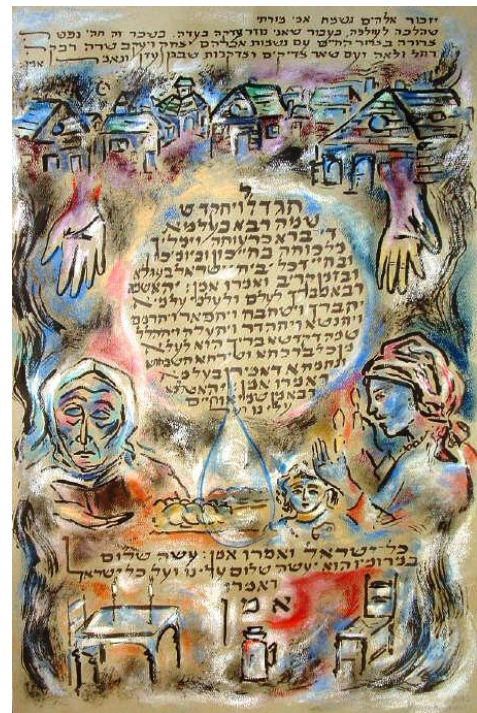 יזכור אלהים נשמת אמי מורתי
שהלכה לעולמה, בעבור שאני נודר צדקה בעדה. בשכר זה תהי נפשה
צרורה בצרור החיים עם נשמות אברהם יצחק ויעקב שרה רבקה
רחל ולאה ועם שאר צדקים וצדקניות שבגן עדן ונאמר
אמן
יתגדל ויתקדש
שמה רבא בעלמא
די ברא כרעותה וימליך
מלכותה בחייכון וביומיכון
ובחיי דכל בית ישראל בעגלא
ובזמן קריב ואמרו אמן: יהא שמה
רבא מברך לעלם ולעלמי עלמיא
יתברך וישתבח ויתפאר ויתרומם
ויתנשא ויתהדר ויתעלה ויתהלל
שמה דקדשא בריך הוא לעלא
מן כל ברכתא ושירתא תשבחתא
ונחמתא דאמירן בעלמא
ואמרו אמן יהא שלמא
רבא מן שמיא וחיים
עלינו ועל
כל ישראל ואמרו אמן: עשה שלום
במרומיו הוא יעשה שלום עלינו ועל כל ישראל
ואמרו
אמן